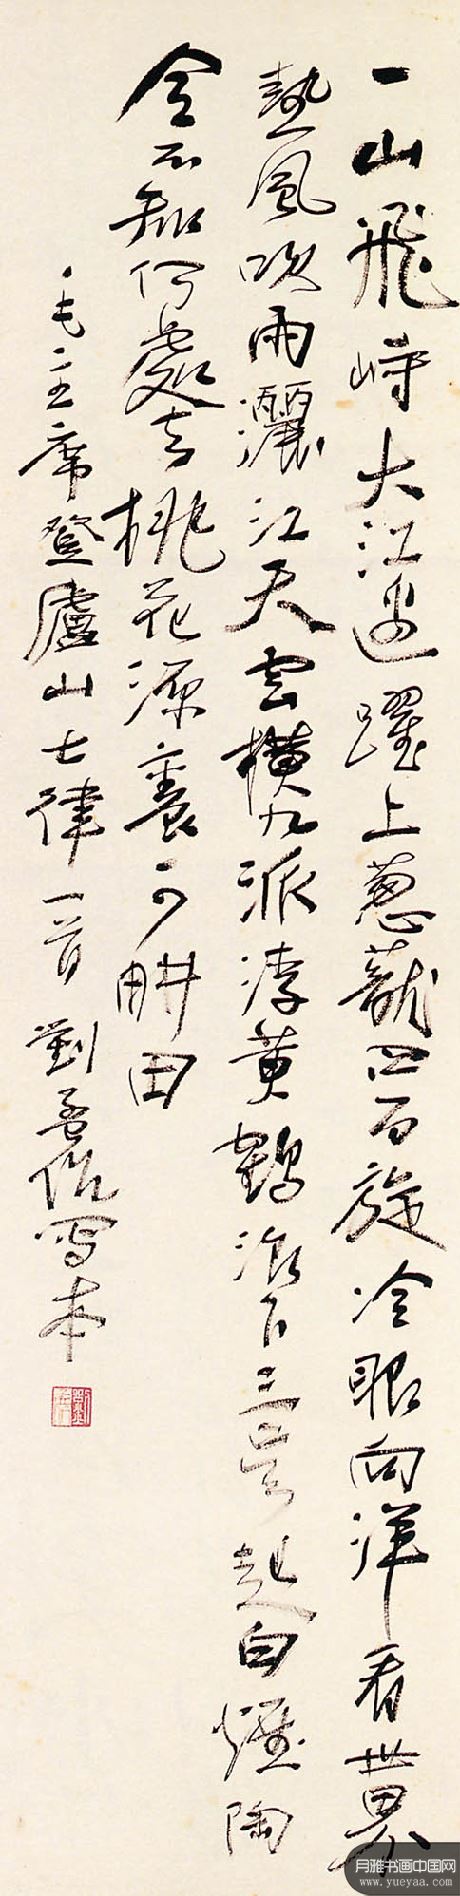 一山飛峙大江邊躍上蔥蘢四百旋冷眼向洋看世界
熱風吹雨灑江天雲橫九派浮黃鶴浪下三吳起白煙陶
令不知何處去桃花源裏可耕田
毛主席登廬山七律一首 劉孟伉寫本
月雅书画中国网
www.yueyaa.com